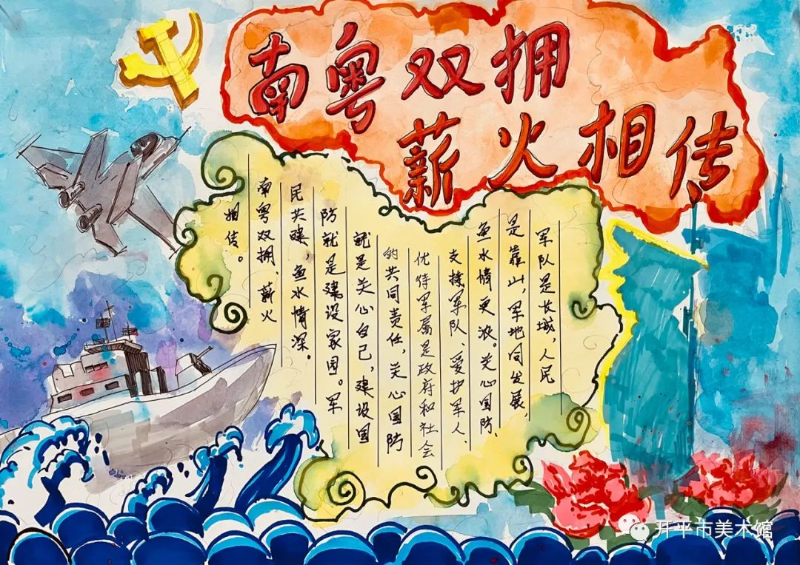 南粤双拥
薪火相传
军队是长城，人民
是靠山，军地同发展，
鱼水情更浓。关心国防、
支援军队、爱护军人、
优待军属是政府和社会
的共同责任，关心国防
就是关心自己，建设国
防就是建设家园。军
民共建、鱼水情深。
南粤双拥、薪火
相传。
开平市美术馆